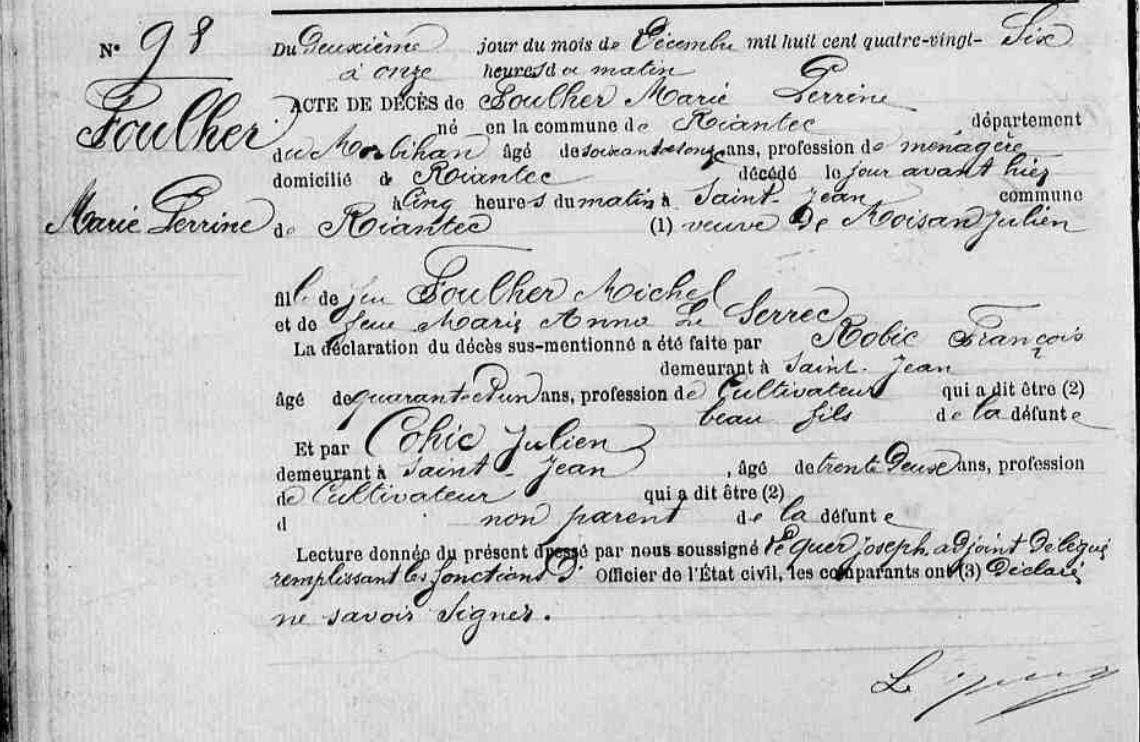 N° 98
Foulher
Marie Perrine
Du deuxième jour du mois de Décembre mil huit cent quatre-vingt- Six
à onze heures du matin
ACTE DE DÉCÈS de Foulher Marie Perrine
né en la commune de Riantec département
du Morbihan âgé de ans, profession de ménagère
domicilié à Riantec décédé le jour avant hier
à Cinq heures du matin à Saint-Jean commune
de Riantec (1) veuve de Moisan Julien
fille de feu Foulher Michel
et de feue Marie Anne Le Serrec
La déclaration du décès sus-mentionné a été faite par Robic François
demeurant à Saint-Jean
âgé de quarante et un ans, profession de Cultivateur qui a dit être (2)
beau fils de la défunte
Et par Cohic Julien
demeurant à Saint-Jean, âgé de trente deux ans, profession
de Cultivateur qui a dit être (2)
d non parent de la défunte
Lecture donnée du présent dressé par nous soussigné joseph adjoint délégué
remplissant les fonctions d' Officier de l'État civil, les comparants ont (3) déclaré
ne savoir Signer.